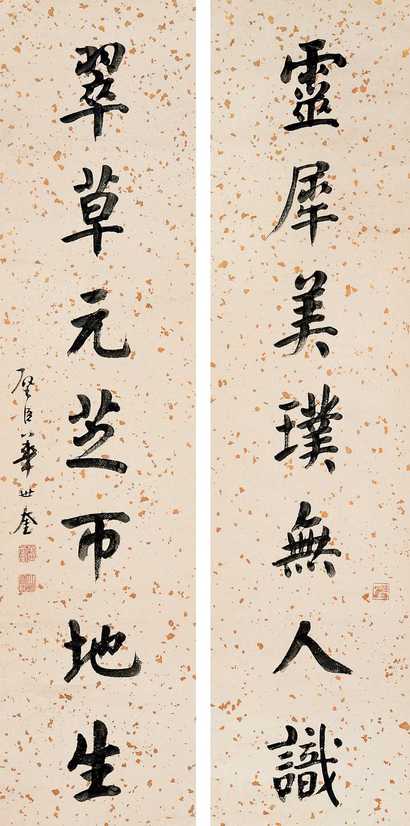 靈犀美璞無人識
翠草元芝帀地生
璧臣華世奎